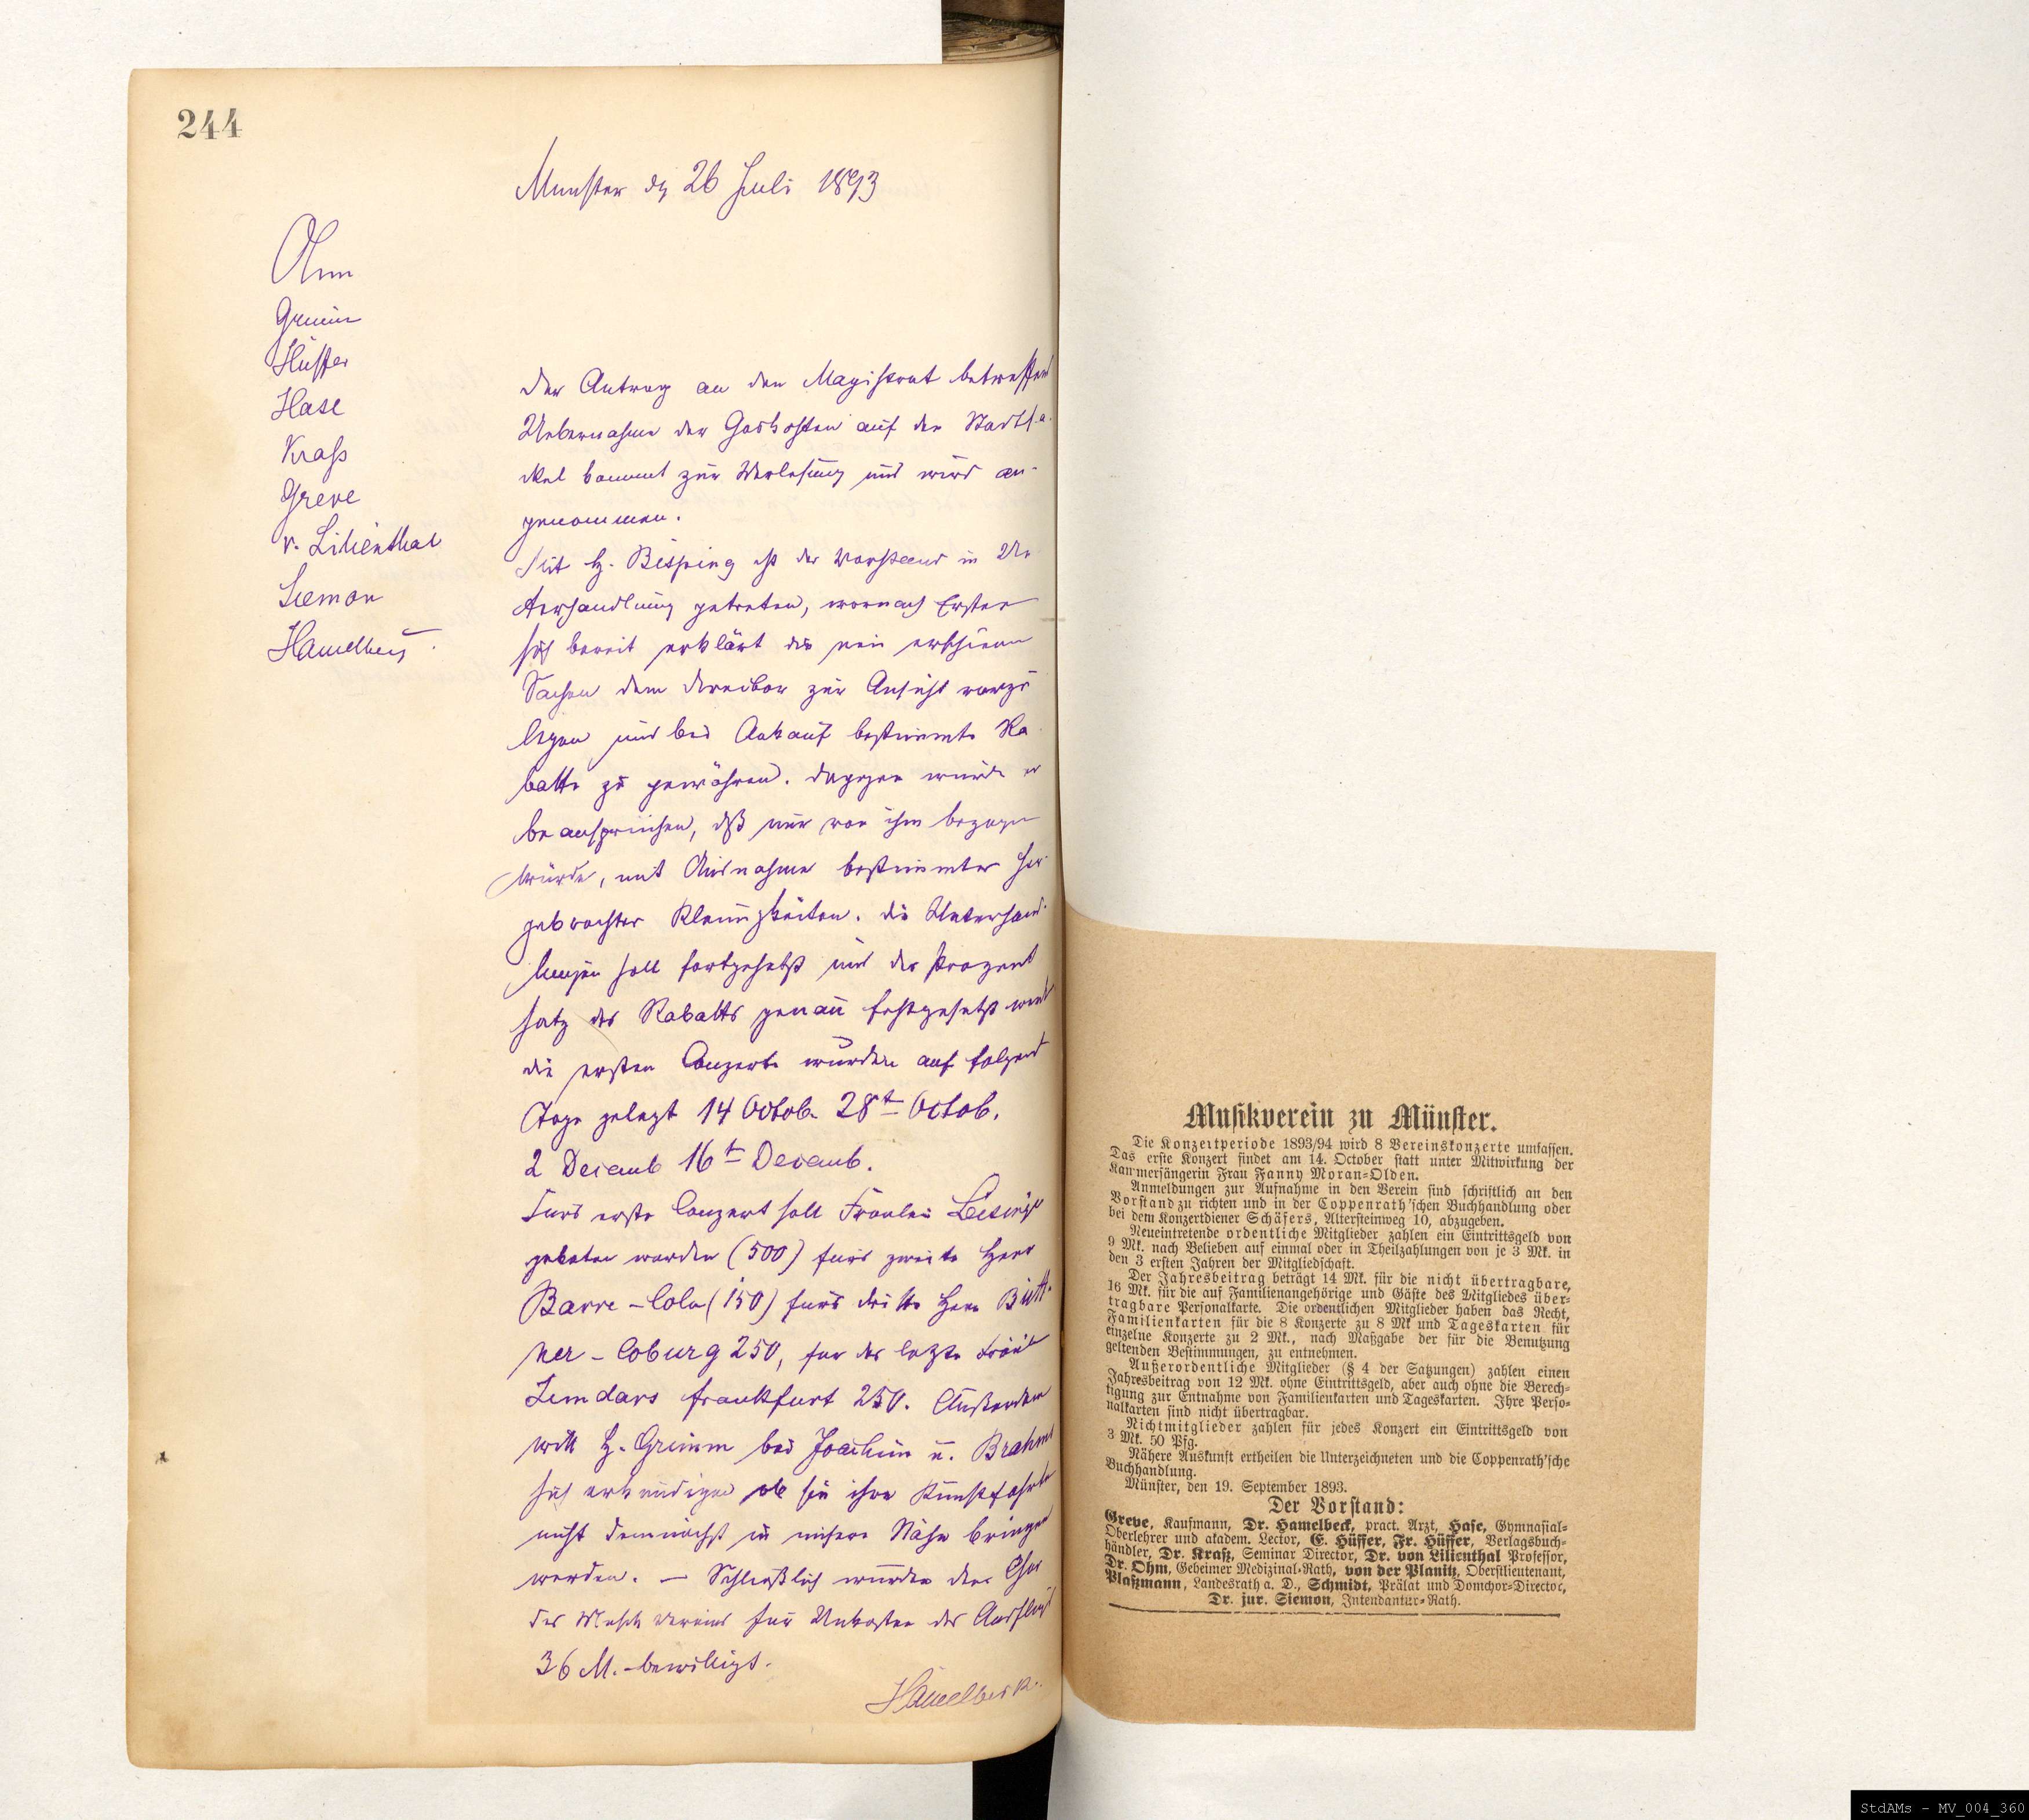 244
Münster dη 26 Juli 1893
Ohm
Grimm
Hüffer
Hase
Kraß
Greve
v. Lilienthal
Siemon
Hamelbeck
Der Antrag an den Magistrat betreffend
Uebernahme der Gaskosten auf den Stadtsä-
ckel kommt zur Verlesung und wird an-
genommen.
Mit H. Bisping ist der Vorstand in Un
terhandlung getreten, wonach Erster
sich bereit erklärt die neu erschienen
Sachen dem Director zur Ansicht vorzu
legen und bei Ankauf bestimmte Ra
batte zu gewähren. Dagegen würde er
beanspruchen, daß nur von ihm bezogen
würde, mit Ausnahme bestimmter her-
gebrachter Kleinigkeiten. Die Unterhand-
lungen soll fortgesetzt und der Prozent
satz des Rabatts genau festgesetzt werd
Die ersten Conzerte wurden auf folgend
Tage gelegt 14 Octob. 28t Octob.
2 Decemb 16t Decemb.
Furs erste Conzert soll Fräulein
gebeten werden (500) furs zweite Herr
Barre - Coln (150) furs dritte Herr Bütt-
ner - Coburg 250, fur das letzte Fräul
Frankfurt 250. Außerdem
will H. Grimm bei Joachim u. Brahms
sich erkundigen ob sie ihre Kunstfahrten
nicht demnächst in unsere Nähe bringen
werden. — Schließlich wurden dem Chor
des Musikvereins für Unkosten des Ausflugs
36 M. bewilligt.
Hamelbeck.
Musikverein zu Münster.
Die Konzertperiode 1893/94 wird 8 Vereinskonzerte umfassen.
Das erste Konzert findet am 14. October statt unter Mitwirkung der
Kammersängerin Frau Fanny Moran-Olden.
Anmeldungen zur Aufnahme in den Verein sind schriftlich an den
Vorstand zu richten und in der Coppenrath'schen Buchhandlung oder
bei dem Konzertdiener Schäfers, Altersteinweg 10, abzugeben.
Neueintretende ordentliche Mitglieder zahlen ein Eintrittsgeld von
9 Mk. nach Belieben auf einmal oder in Theilzahlungen von je 3 Mk. in
den 3 ersten Jahren der Mitgliedschaft.
Der Jahresbeitrag beträgt 14 Mk. für die nicht übertragbare,
16 Mk. für die auf Familienangehörige und Gäste des Mitgliedes über-
tragbare Personalkarte. Die ordentlichen Mitglieder haben das Recht,
Familienkarten für die 8 Konzerte zu 8 Mk und Tageskarten für
einzelne Konzerte zu 2 Mk., nach Maßgabe der für die Benutzung
geltenden Bestimmungen, zu entnehmen.
Außerordentliche Mitglieder (§ 4 der Satzungen) zahlen einen
Jahresbeitrag von 12 Mk. ohne Eintrittsgeld, aber auch ohne die Berech-
tigung zur Entnahme von Familienkarten und Tageskarten. Ihre Perso-
nalkarten sind nicht übertragbar.
Nichtmitglieder zahlen für jedes Konzert ein Eintrittsgeld von
3 Mk. 50 Pfg.
Nähere Auskunft ertheilen die Unterzeichneten und die Coppenrath'sche
Buchhandlung.
Münster, den 19. September 1893.
Der Vorstand:
Greve, Kaufmann, Dr. Hamelbeck, pract. Arzt, Hase, Gymnasial-
Oberlehrer und akadem. Lector, E. Hüffer, Fr. Hüffer, Verlagsbuch-
händler, Dr. Kraß, Seminar Director, Dr. von Lilienthal Professor,
Dr. Ohm, Geheimer Medizinal-Rath, von der Planitz, Oberstlieutenant,
Plaßmann, Landesrath a. D., Schmidt, Prälat und Domchor-Director,
Dr. jur. Siemon, Intendantur-Rath.
StdAMs - MV_004_360